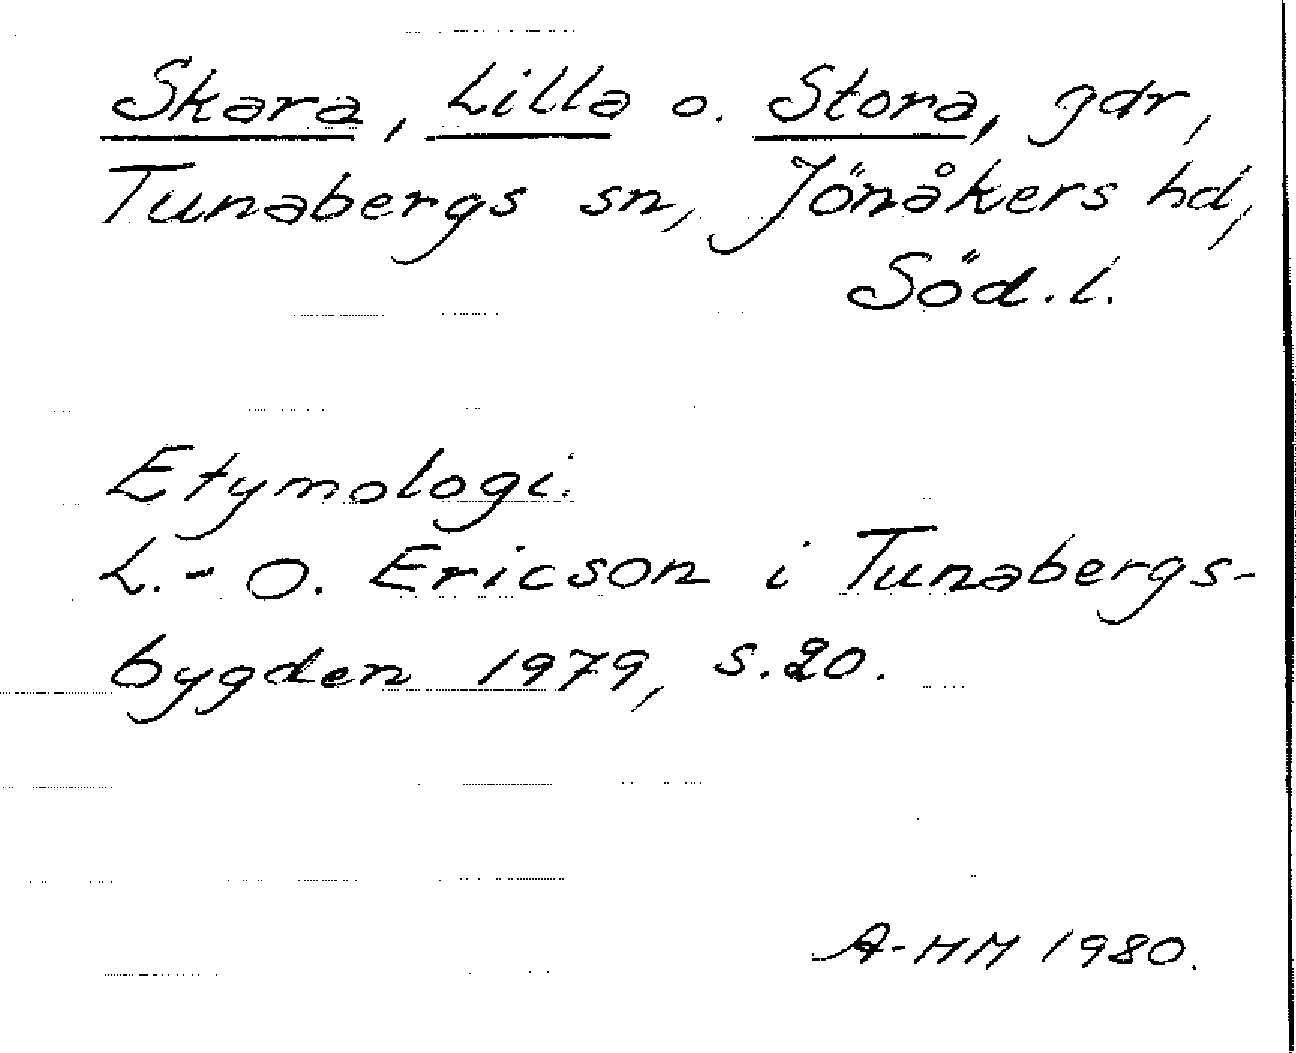 Skara, Lilla o. Stora, gdr,
Tunabergs sn, Jönåkers hd,
Söd.l.
Etymologi.
L.-O. Ericson i Tunabergs-
bygden 1979, s.20.
A-HM 1980.